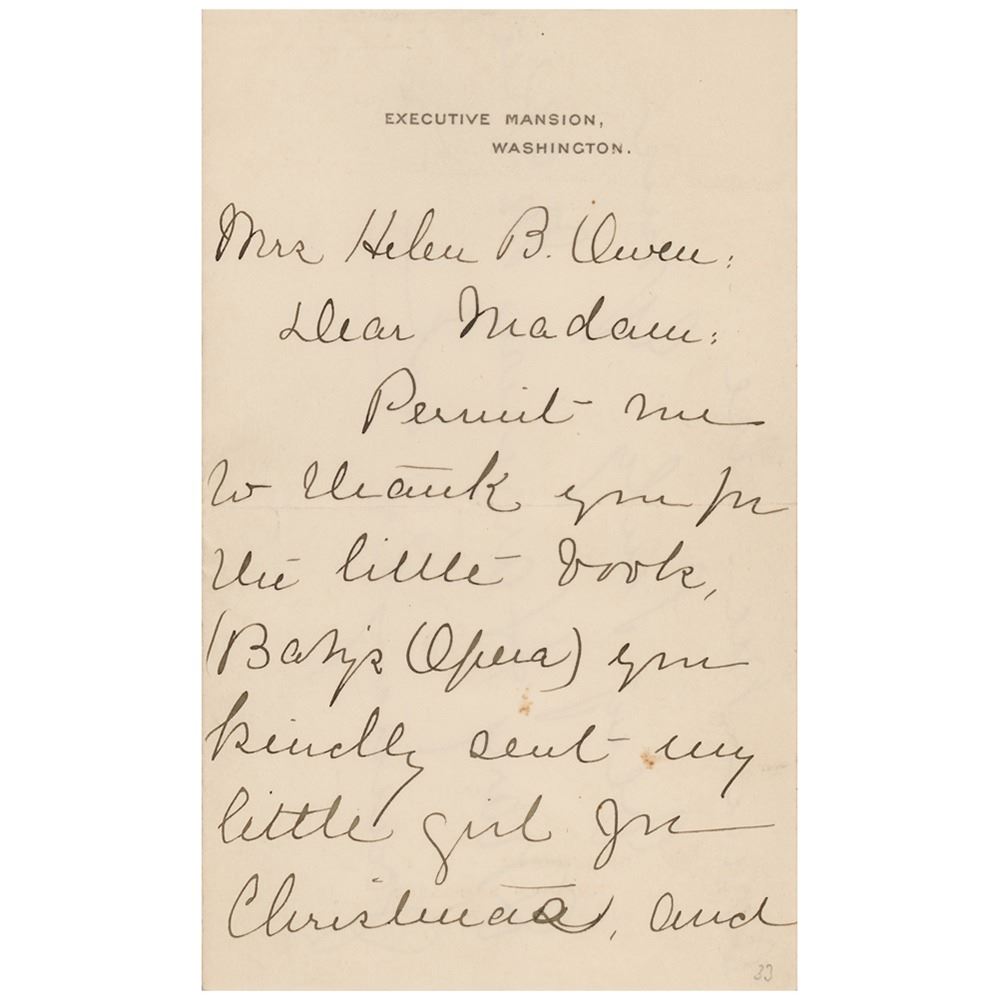 EXECUTIVE MANSION,
WASHINGTON.
Mrs Helen B. Owen:
Dear Madam:
Permit me
to thank you for
the little book,
(Baby's Opera) you
kindly sent my
little girl for
Christmas, and
33